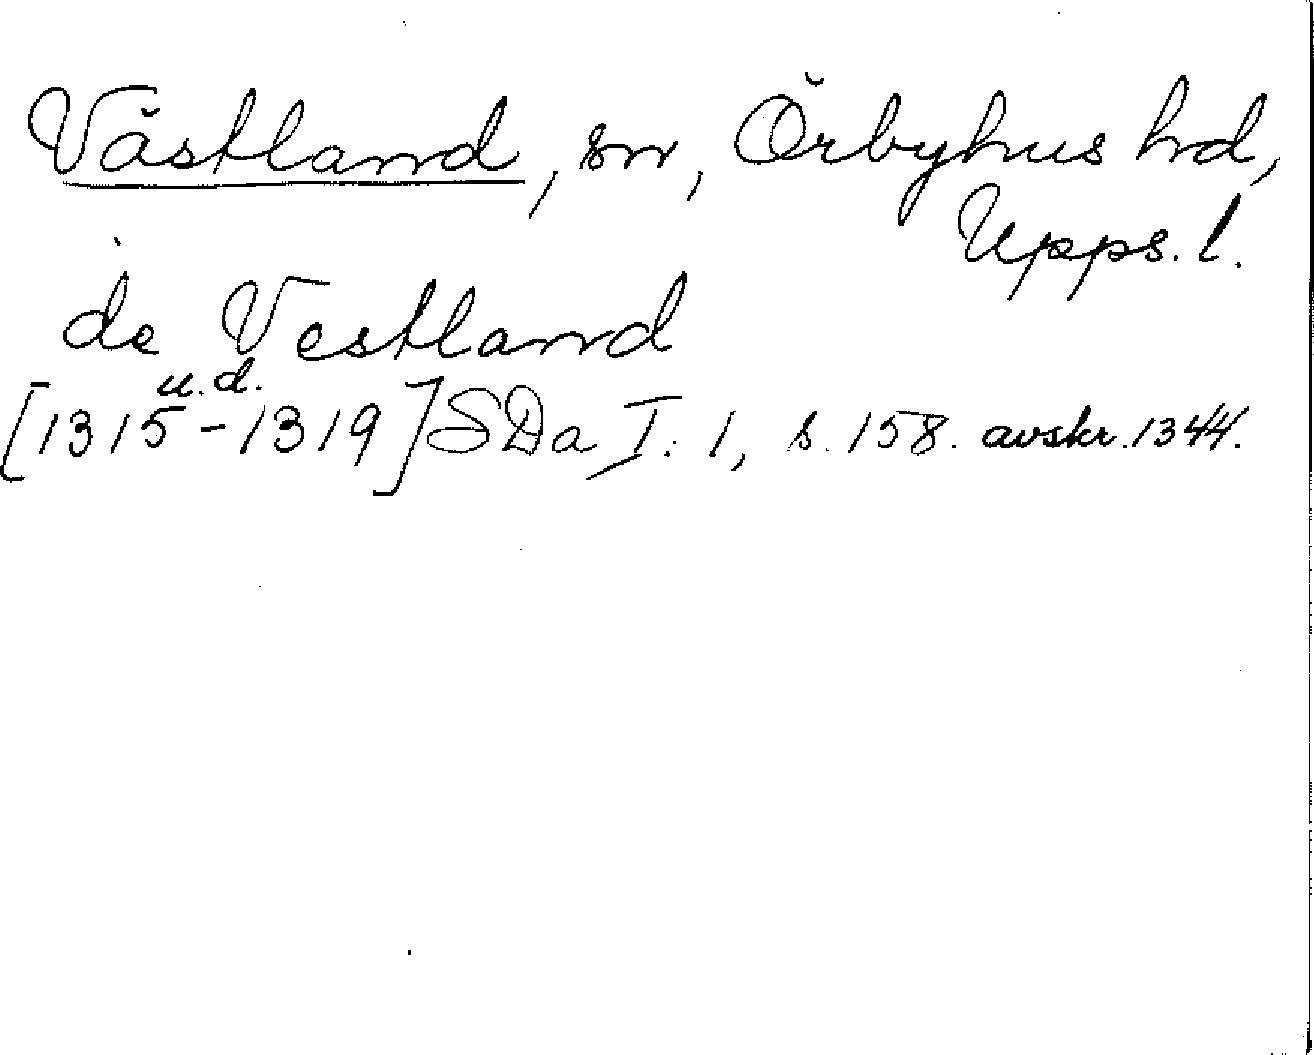 Västland, sn, Örbyhus hd,
Upps. l.
de Vestland
u.d.
[1315-1319] SDa I: 1, s. 158. avskr. 1344.